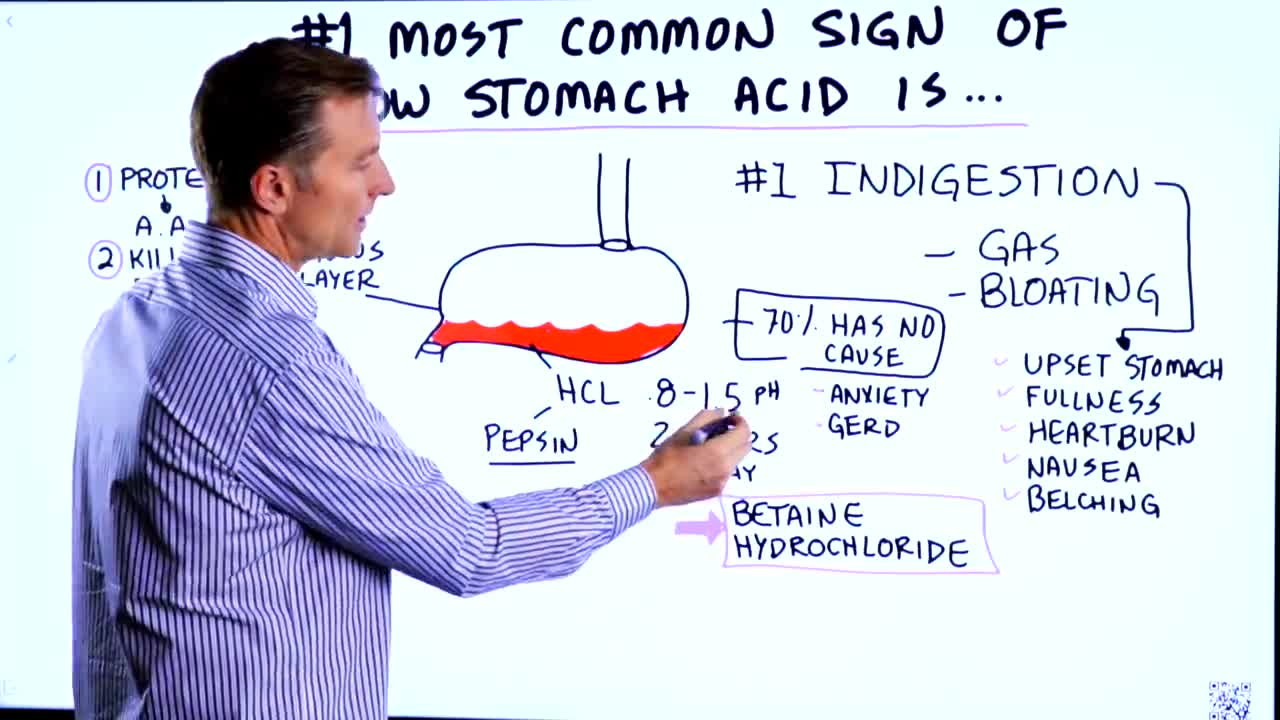 #1 MOST COMMON SIGN OF
STOMACH ACID IS...
1
A.A
2
LAYER
HCL .8-1.5 PH
PEPSIN
#1 INDIGESTION
- GAS
- BLOATING
70% HAS NO
CAUSE
- ANXIETY
- GERD
UPSET STOMACH
FULLNESS
HEARTBURN
NAUSEA
BELCHING
BETAINE
HYDROCHLORIDE